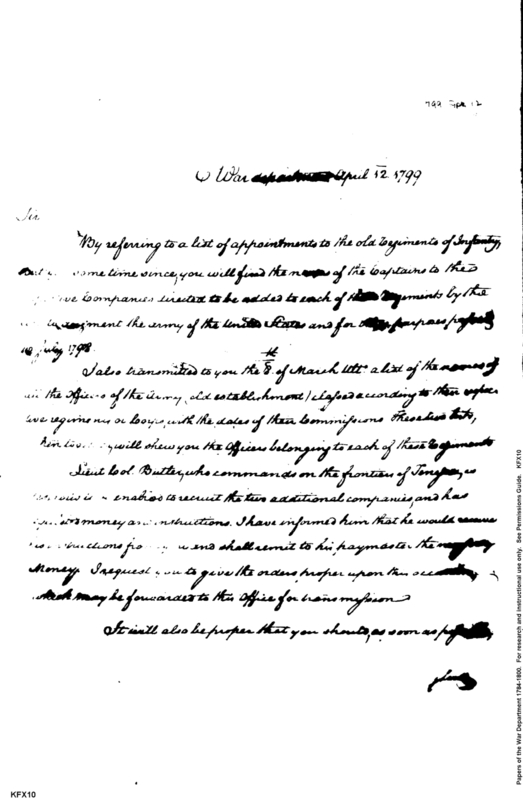 799 Apr 12
War department April 12 1799
Sir
By referring to a list of appointments to the old Regiments of Infantry,
some time since, you will find the names of the Captains to the
Companies directed to be added to each of these Regiments by the
the Army of the United States and for other purposes passed
July 1798.
I also transmitted to you the 8th of March Ulto. a list of the names of
all the Officers of the Army (old establishment) classed according to their
regiments or Corps, with the dates of their Commissions These two lists,
will shew you the Officers belonging to each of these Regiments
Lieut Col. Butler, who commands on the frontiers of
to recruit the two additional companies, and has
money and instructions. I have informed him that he would receive
from and shall remit to his paymaster the necessary
Money. I request you to give the orders proper upon this occasion,
which may be forwarded to this Office for transmission
It will also be proper that you should, as soon as possible,
Papers of the War Department 1784-1800. For research and instructional use only. See Permissions Guide. KFX10
KFX10